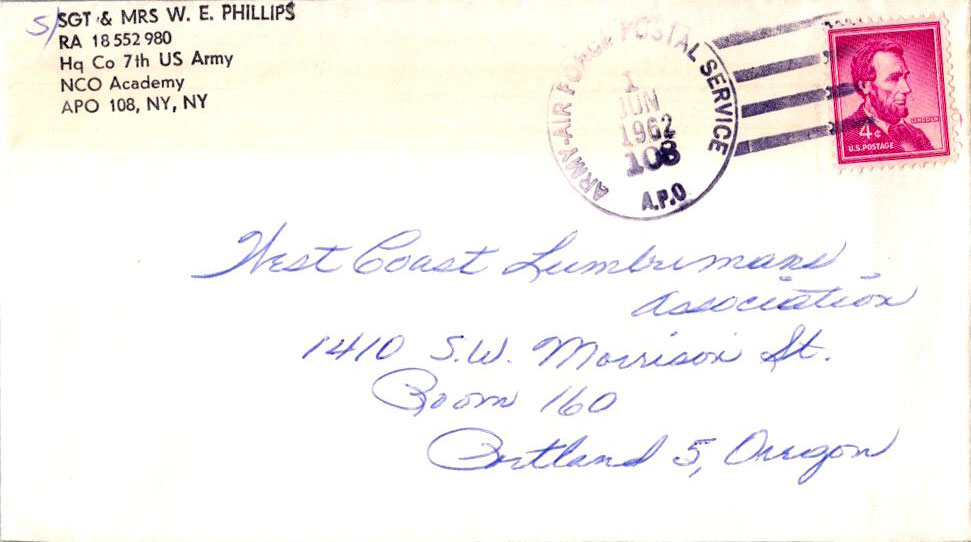 S/SGT & MRS W. E. PHILLIPS
RA 18 552 980
Hq Co 7th US Army
NCO Academy
APO 108, NY, NY
ARMY-AIR FORCE POSTAL SERVICE
1
JUN
1962
108
A.P.O
LINCOLN
4¢
U.S. POSTAGE
West Coast Lumbrimans
Association
1410 S.W. Morrison St.
Room 160
Portland 5, Oregon